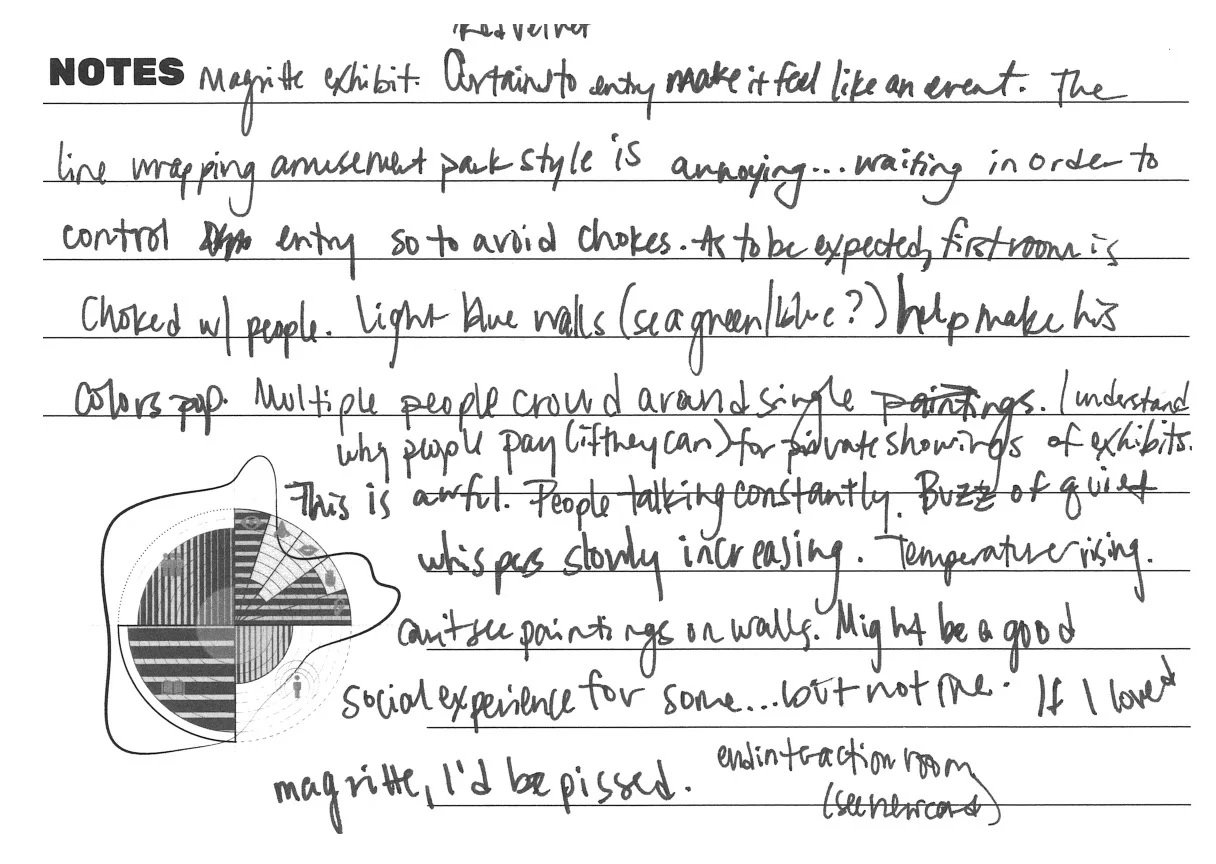 Red velvet
NOTES Magritte exhibit. Curtains to entry make it feel like an event. The
line wrapping amusement park style is annoying... waiting in order to
control entry so to avoid chokes. As to be expected, first room is
choked w/ people. Light blue walls (sea green/blue?) help make his
colors pop. Multiple people crowd around single paintings. I understand
why people pay (if they can) for private showings of exhibits.
This is awful. People talking constantly. Buzz of quiet
whispers slowly increasing. Temperature rising.
can't see paintings on walls. Might be a good
social experience for some... but not me. If I loved
magritte, I'd be pissed. end interaction room
(see new card)